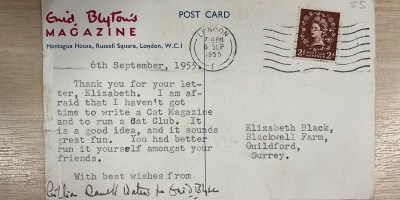 Enid Blyton's
MAGAZINE
POST CARD
Montague House, Russell Square, London, W.C.1
LONDON
7 PM
6 SEP
1955
2d
6th September, 1955.
Thank you for your let-
ter, Elizabeth. I am af-
raid that I haven't got
time to write a Cat Magazine
and to run a Cat Club. It
is a good idea, and it sounds
great fun. You had better
run it yourself amongst your
friends.
With best wishes from
Enid Blyton
Elizabeth Black,
Blackwell Farm,
Guildford,
Surrey.